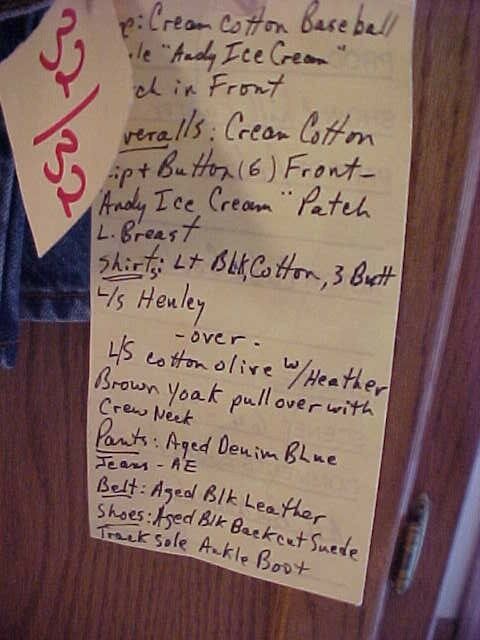 32/32
Cream Cotton Baseball
"Andy Ice Cream"
in Front
veralls: Cream Cotton
ip + Button (6) Front -
Andy Ice Cream" Patch
L. Breast
Shirts: Lt Blk, Cotton, 3 Butt
L/s Henley
- over -
L/S cotton olive w/Heather
Brown Yoak pull over with
Crew Neck
Pants: Aged Denim BLue
Jeans - AE
Belt: Aged Blk Leather
Shoes: Aged Blk Back cut Suede
Track sole Ankle Boot